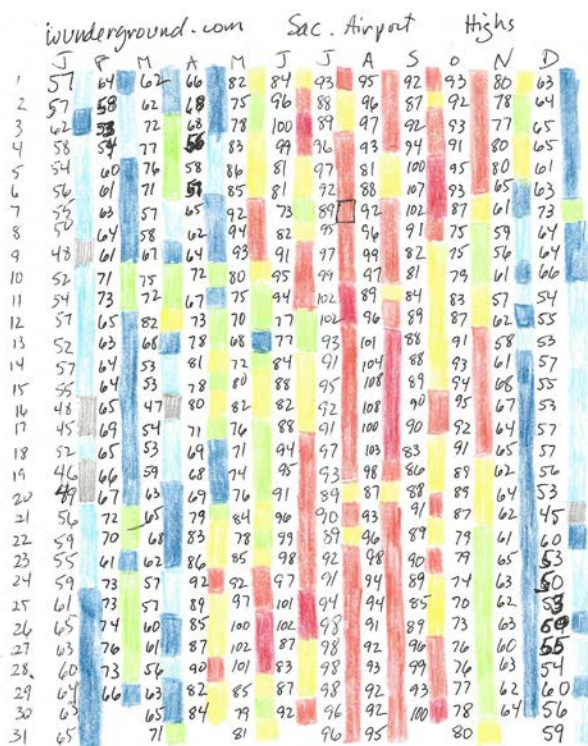 wunderground.com Sac. Airport Highs
J F M A M J J A S O N D
1 57 64 62 66 82 84 93 95 92 93 80 63
2 57 58 62 68 75 96 88 96 87 92 78 64
3 62 53 72 68 78 100 89 97 92 93 77 65
4 58 54 77 56 83 99 96 93 94 91 80 65
5 54 60 76 58 86 81 97 81 100 95 80 61
6 56 61 71 85 81 92 88 107 93 65 63
7 55 63 57 65 92 73 89 92 102 87 61 73
8 64 58 62 94 82 95 96 91 75 59 64
9 48 61 67 64 93 91 97 99 82 75 56 64
10 52 71 75 72 80 95 99 97 81 79 61 66
11 54 73 72 67 75 94 102 89 84 83 57 54
12 57 65 82 73 70 77 102 96 89 87 62 55
13 52 63 68 78 68 77 93 101 88 91 58 53
14 57 64 53 81 72 84 91 104 88 93 61 57
15 55 64 53 78 80 88 95 108 89 94 68 55
16 48 65 47 80 82 82 92 108 90 95 67 53
17 45 69 54 71 76 88 91 100 90 92 64 57
18 52 65 53 69 71 94 97 103 83 91 65 57
19 46 66 59 68 74 95 93 98 86 89 62 56
20 49 67 63 69 76 91 89 87 88 89 64 53
21 56 72 65 79 84 96 90 93 91 87 62 45
22 59 70 68 83 78 99 89 96 89 79 61 60
23 55 61 62 86 85 98 92 98 90 79 65 53
24 59 73 57 92 92 97 91 94 89 74 63 50
25 61 73 57 89 97 101 94 94 85 70 62 53
26 65 74 60 85 100 102 98 91 89 73 63
27 63 76 61 87 102 87 98 92 96 76 60 55
28 60 73 56 90 101 83 98 93 99 76 63 54
29 64 66 63 82 85 87 98 92 93 77 62 60
30 63 65 84 79 92 96 92 100 78 64 56
31 65 71 81 96 95 80 59